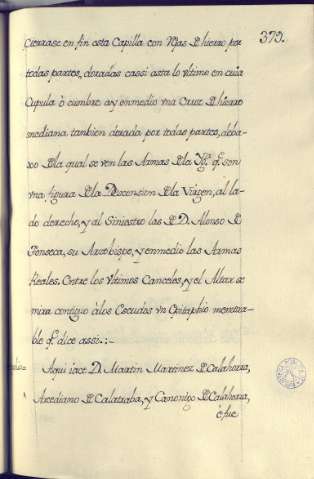 379.
Cierrase en fin esta Capilla con Rejas D hierro por
todas partes, doradas cassi asta lo vltimo en cuia
Cupula ò cumbre ay enmedio vna Cruz D hierro
mediana tambien dorada por todas partes, deba-
xo Dla qual se ven las Armas Dla Yg.ª q.e son
vna figura Dla Descension Dla Virgen, al la-
do derecho, y al Siniestro las D D. Alonso D
Fonseca, su Arzobispo, y enmedio las Armas
Reales. Entre los vltimos Canceles, y el Altar se
mira contiguo à los Escudos vn Epitaphio
q.e dice assi. :~
Aqui iace D. Martin Martinez D Calahorra,
Arcediano D Calatraba, y Canonigo D Calahorra,
è fue